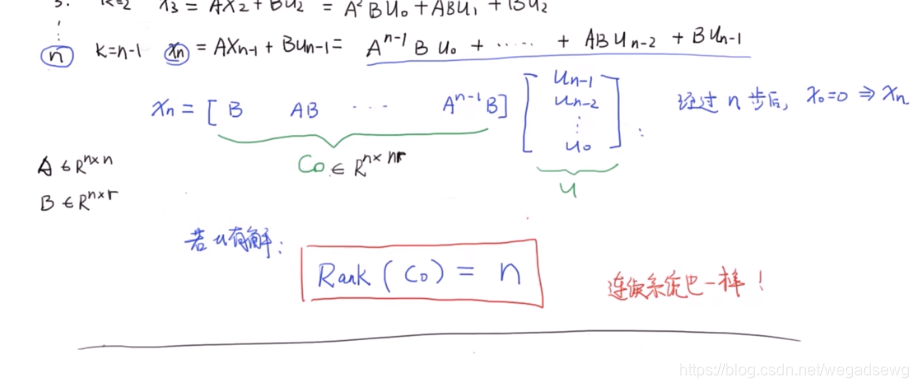 3. k=2 x3 = AX2 + BU2 = A²BU0 + ABU1 + BU2
⋮
n k=n-1 xn = AXn-1 + BUn-1 = A^{n-1} B U0 + ····· + ABUn-2 + BUn-1
xn = [ B AB ··· A^{n-1}B] [ Un-1 Un-2 ⋮ U0 ] 通过 n 步后, x0=0 ⇒ xn
C0 ∈ R^{n×nr} u
A ∈ R^{n×n}
B ∈ R^{n×r}
若 u 有解:
Rank ( C0 ) = n
连续系统也一样!
https://blog.csdn.net/wegadsewg